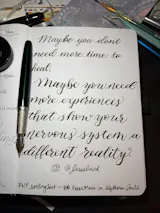 Maybe you dont
need more time to
heal.
Maybe you need
more experiences
that show your
nervous system a
different reality?